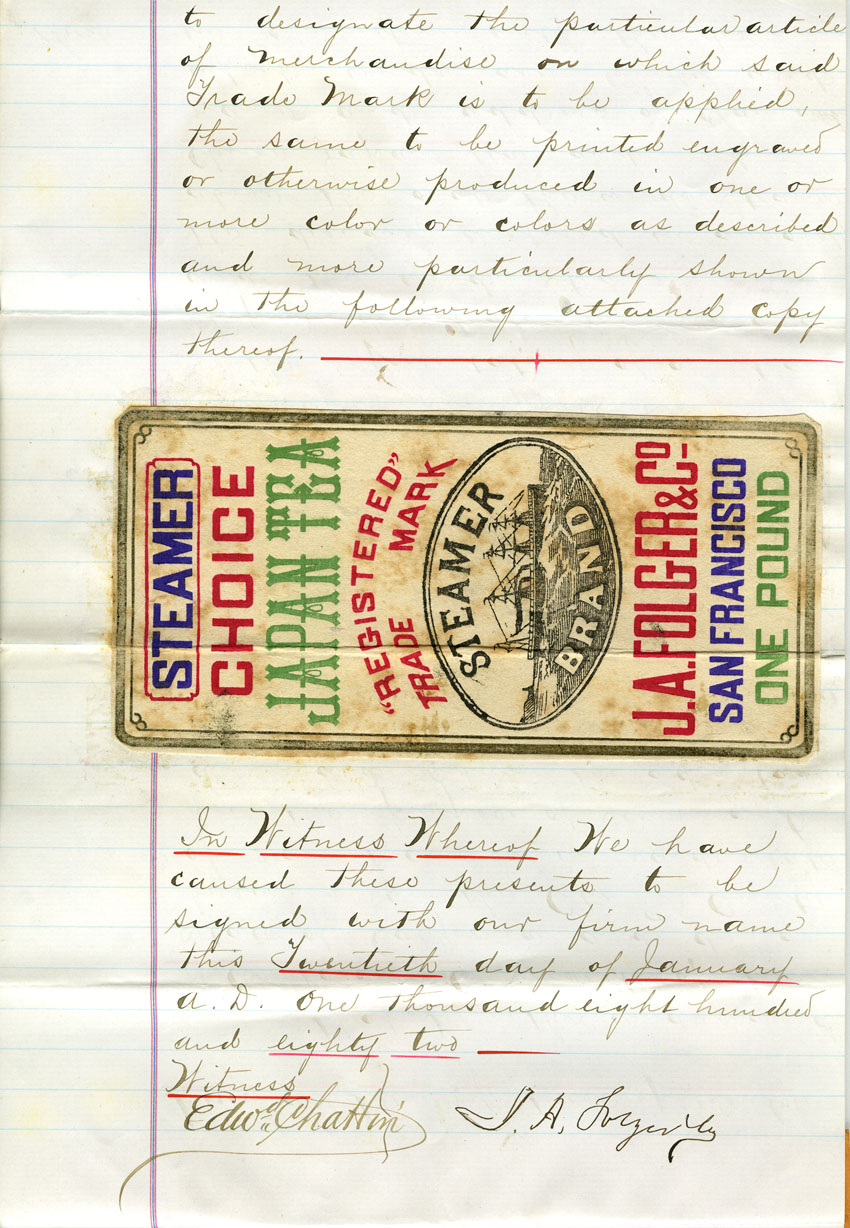 to designate the particular article
of merchandise on which said
Trade Mark is to be applied,
the same to be printed engraved
or otherwise produced in one or
more color or colors as described
and more particularly shown
in the following attached copy
thereof.
STEAMER
CHOICE
JAPAN TEA
"REGISTERED"
TRADE MARK
STEAMER
BRAND
J.A.FOLGER & Co
SAN FRANCISCO
ONE POUND
In Witness Whereof We have
caused these presents to be
signed with our firm name
this Twentieth day of January
a. D. One thousand eight hundred
and eighty two
Witness
Edwd. Chattin
J. A. Folger & Co